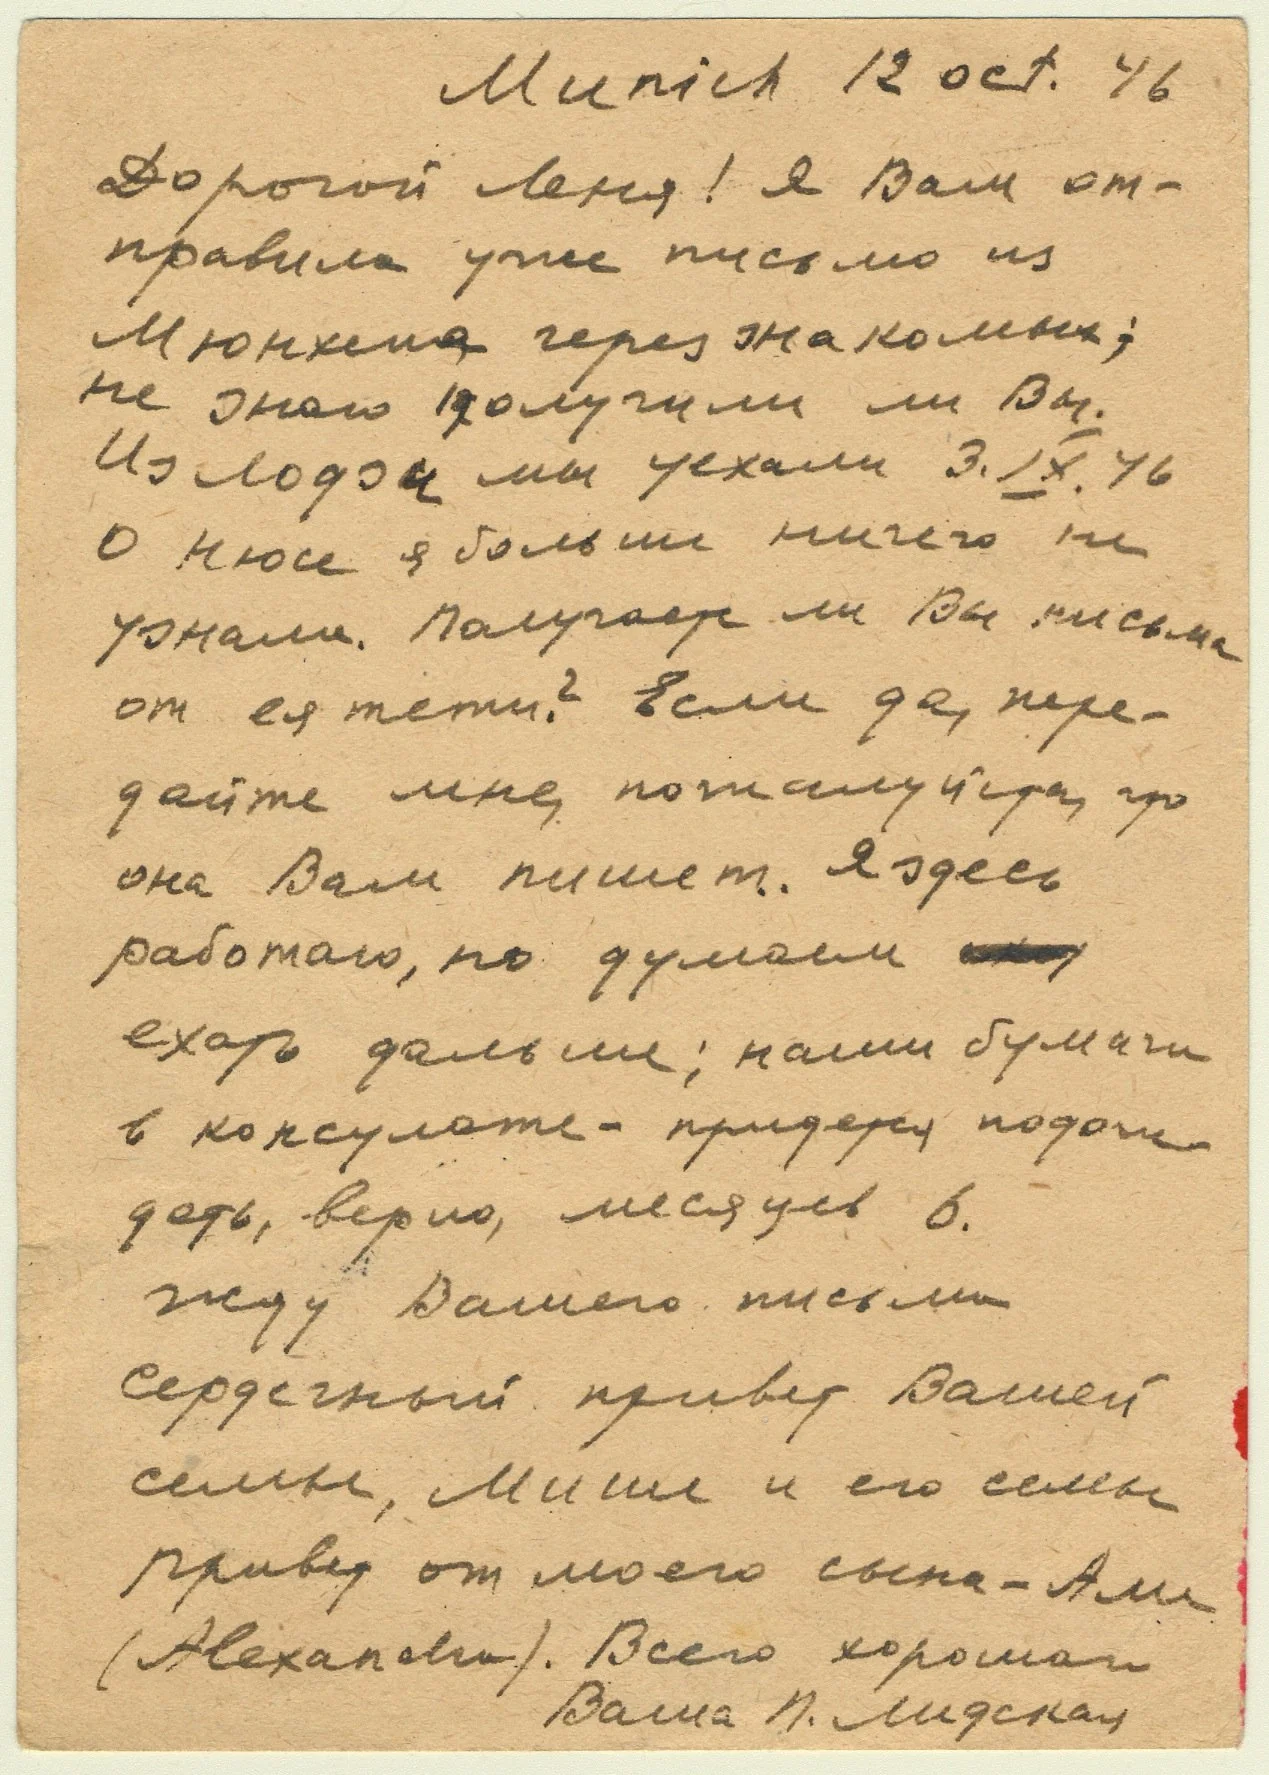 Munich 12 oct. 46
Дорогой Леня! Я Вам от-
правила уже письмо из
Мюнхена через знакомых;
не знаю получили ли Вы.
Из Лодзи мы уехали 3.IX.46
О Нюсе я больше ничего не
узнала. Получаете ли Вы письма
от ея тети? Если да, пере-
дайте мне, пожалуйста, что
она Вам пишет. Я здесь
работаю, но думаем
ехать дальше; наши бумаги
в консулате - придется подож-
дать, верно, месяцев 6.
Жду Вашего письма
Сердечный привет Вашей
семье, Мише и его семье
Привет от моего сына -
(Alexandra). Всего хорошаго
Ваша П. Лидская